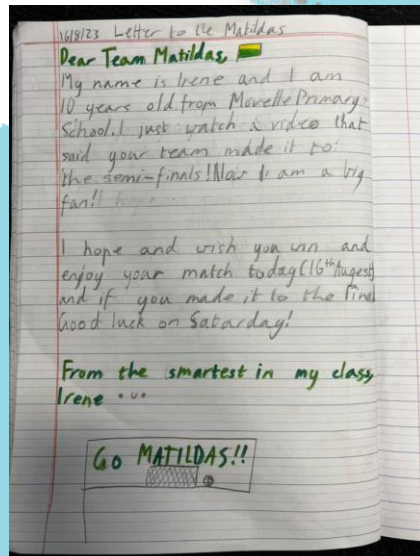 16/8/23 Letter to the Matildas
Dear Team Matildas,
My name is Irene and I am
10 years old from Morelle Primary
School. I just watch a video that
said your team made it to
the semi-finals! Now I am a big
fan!!
I hope and wish you win and
enjoy your match today (16th Augest)
and if you made it to the final
Good luck on Satarday!
From the smartest in my class,
Irene
GO MATILDAS!!